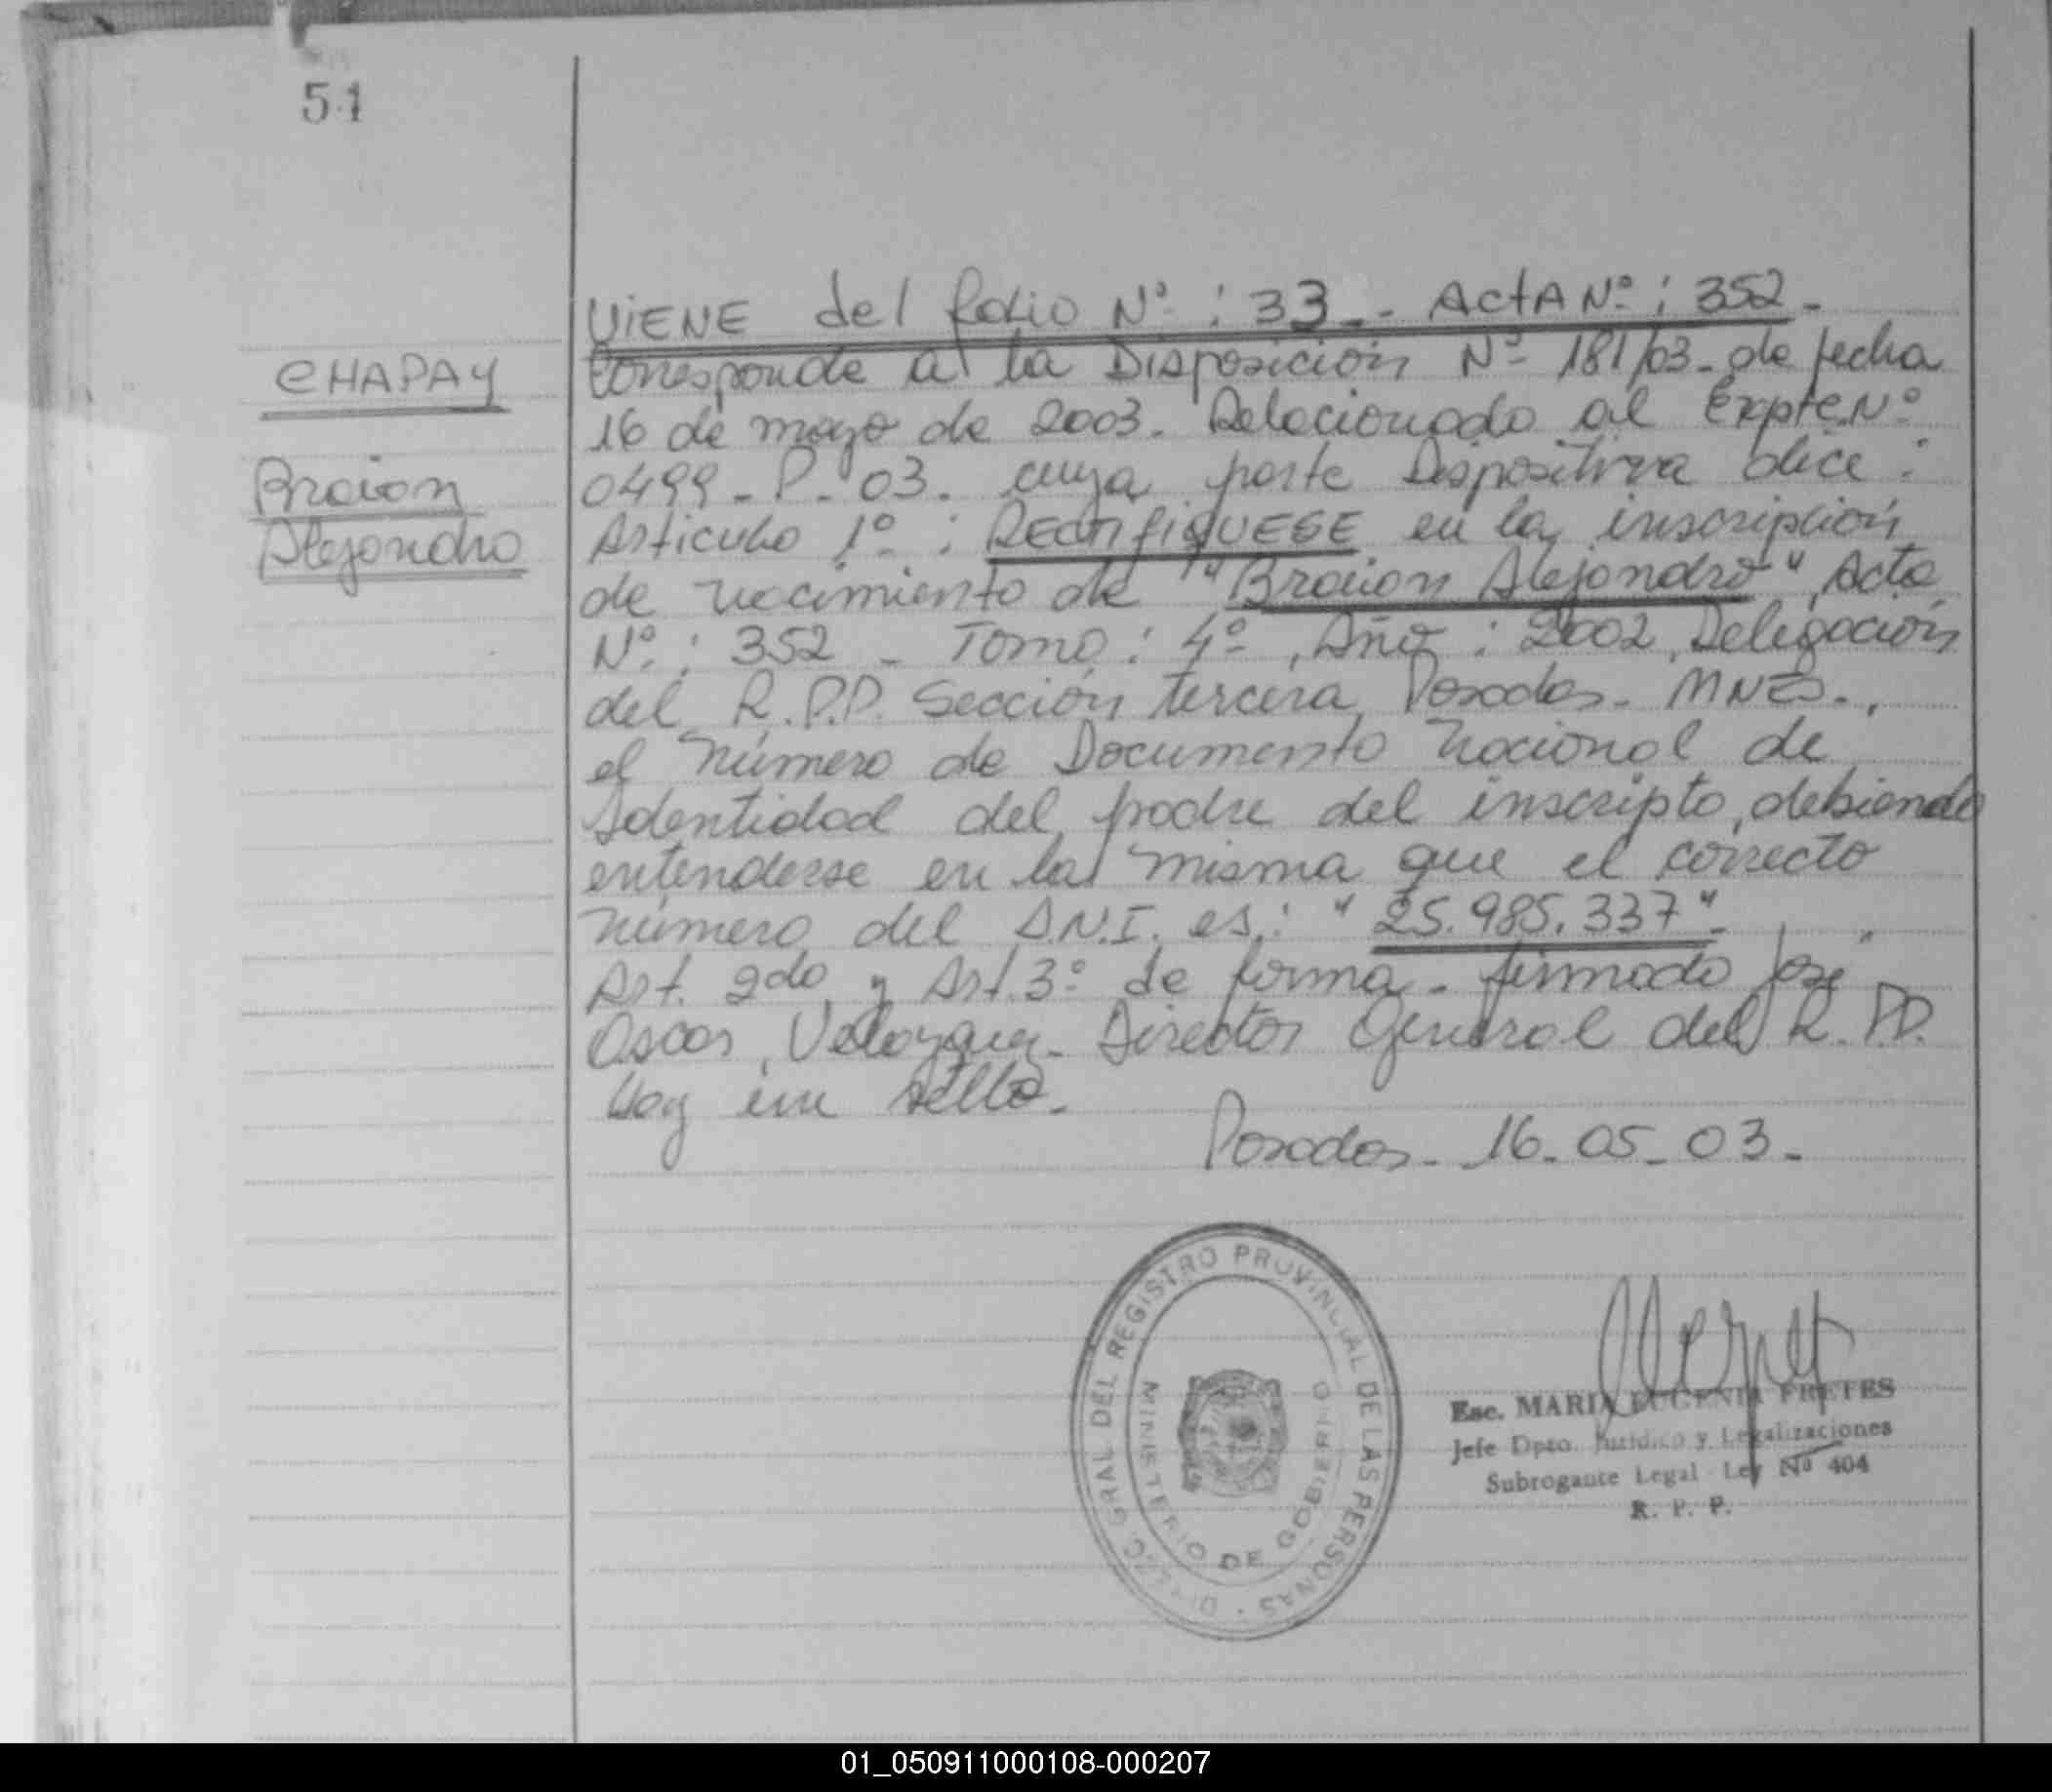 51
VIENE del folio Nº : 33 - ActA Nº : 352 -
CHAPAY
Corresponde a la Disposición Nº 181/03 - de fecha
16 de mayo de 2003. Relacionado al Expte Nº
Braion
0499 - P - 03. cuya parte Dispositiva dice :
Alejandro
Articulo 1º : RECtifiqUESE en la inscripción
de nacimiento de "Braion Alejandro", Acta
Nº : 352 - Tomo : 4º , Año : 2002, Delegación
del R.P.P. Sección tercera, Posadas - MNES.,
el número de Documento Nacional de
Identidad del padre del inscripto, debiendo
entenderse en la misma que el correcto
número del D.N.I. es : "25.985.337" -
Art. 2do y Art. 3º de forma - firmado José
Oscar Velozquez - Director General del R.P.P.
Hay un sello.
Posadas - 16 - 05 - 03 -
DIRECC. GRAL DEL REGISTRO PROVINCIAL DE LAS PERSONAS
MINISTERIO DE GOBIERNO
Esc. MARIA EUGENIA FRETES
Jefe Dpto Juridico y Legalizaciones
Subrogante Legal - Ley Nº 404
R. P. P.
01_050911000108-000207